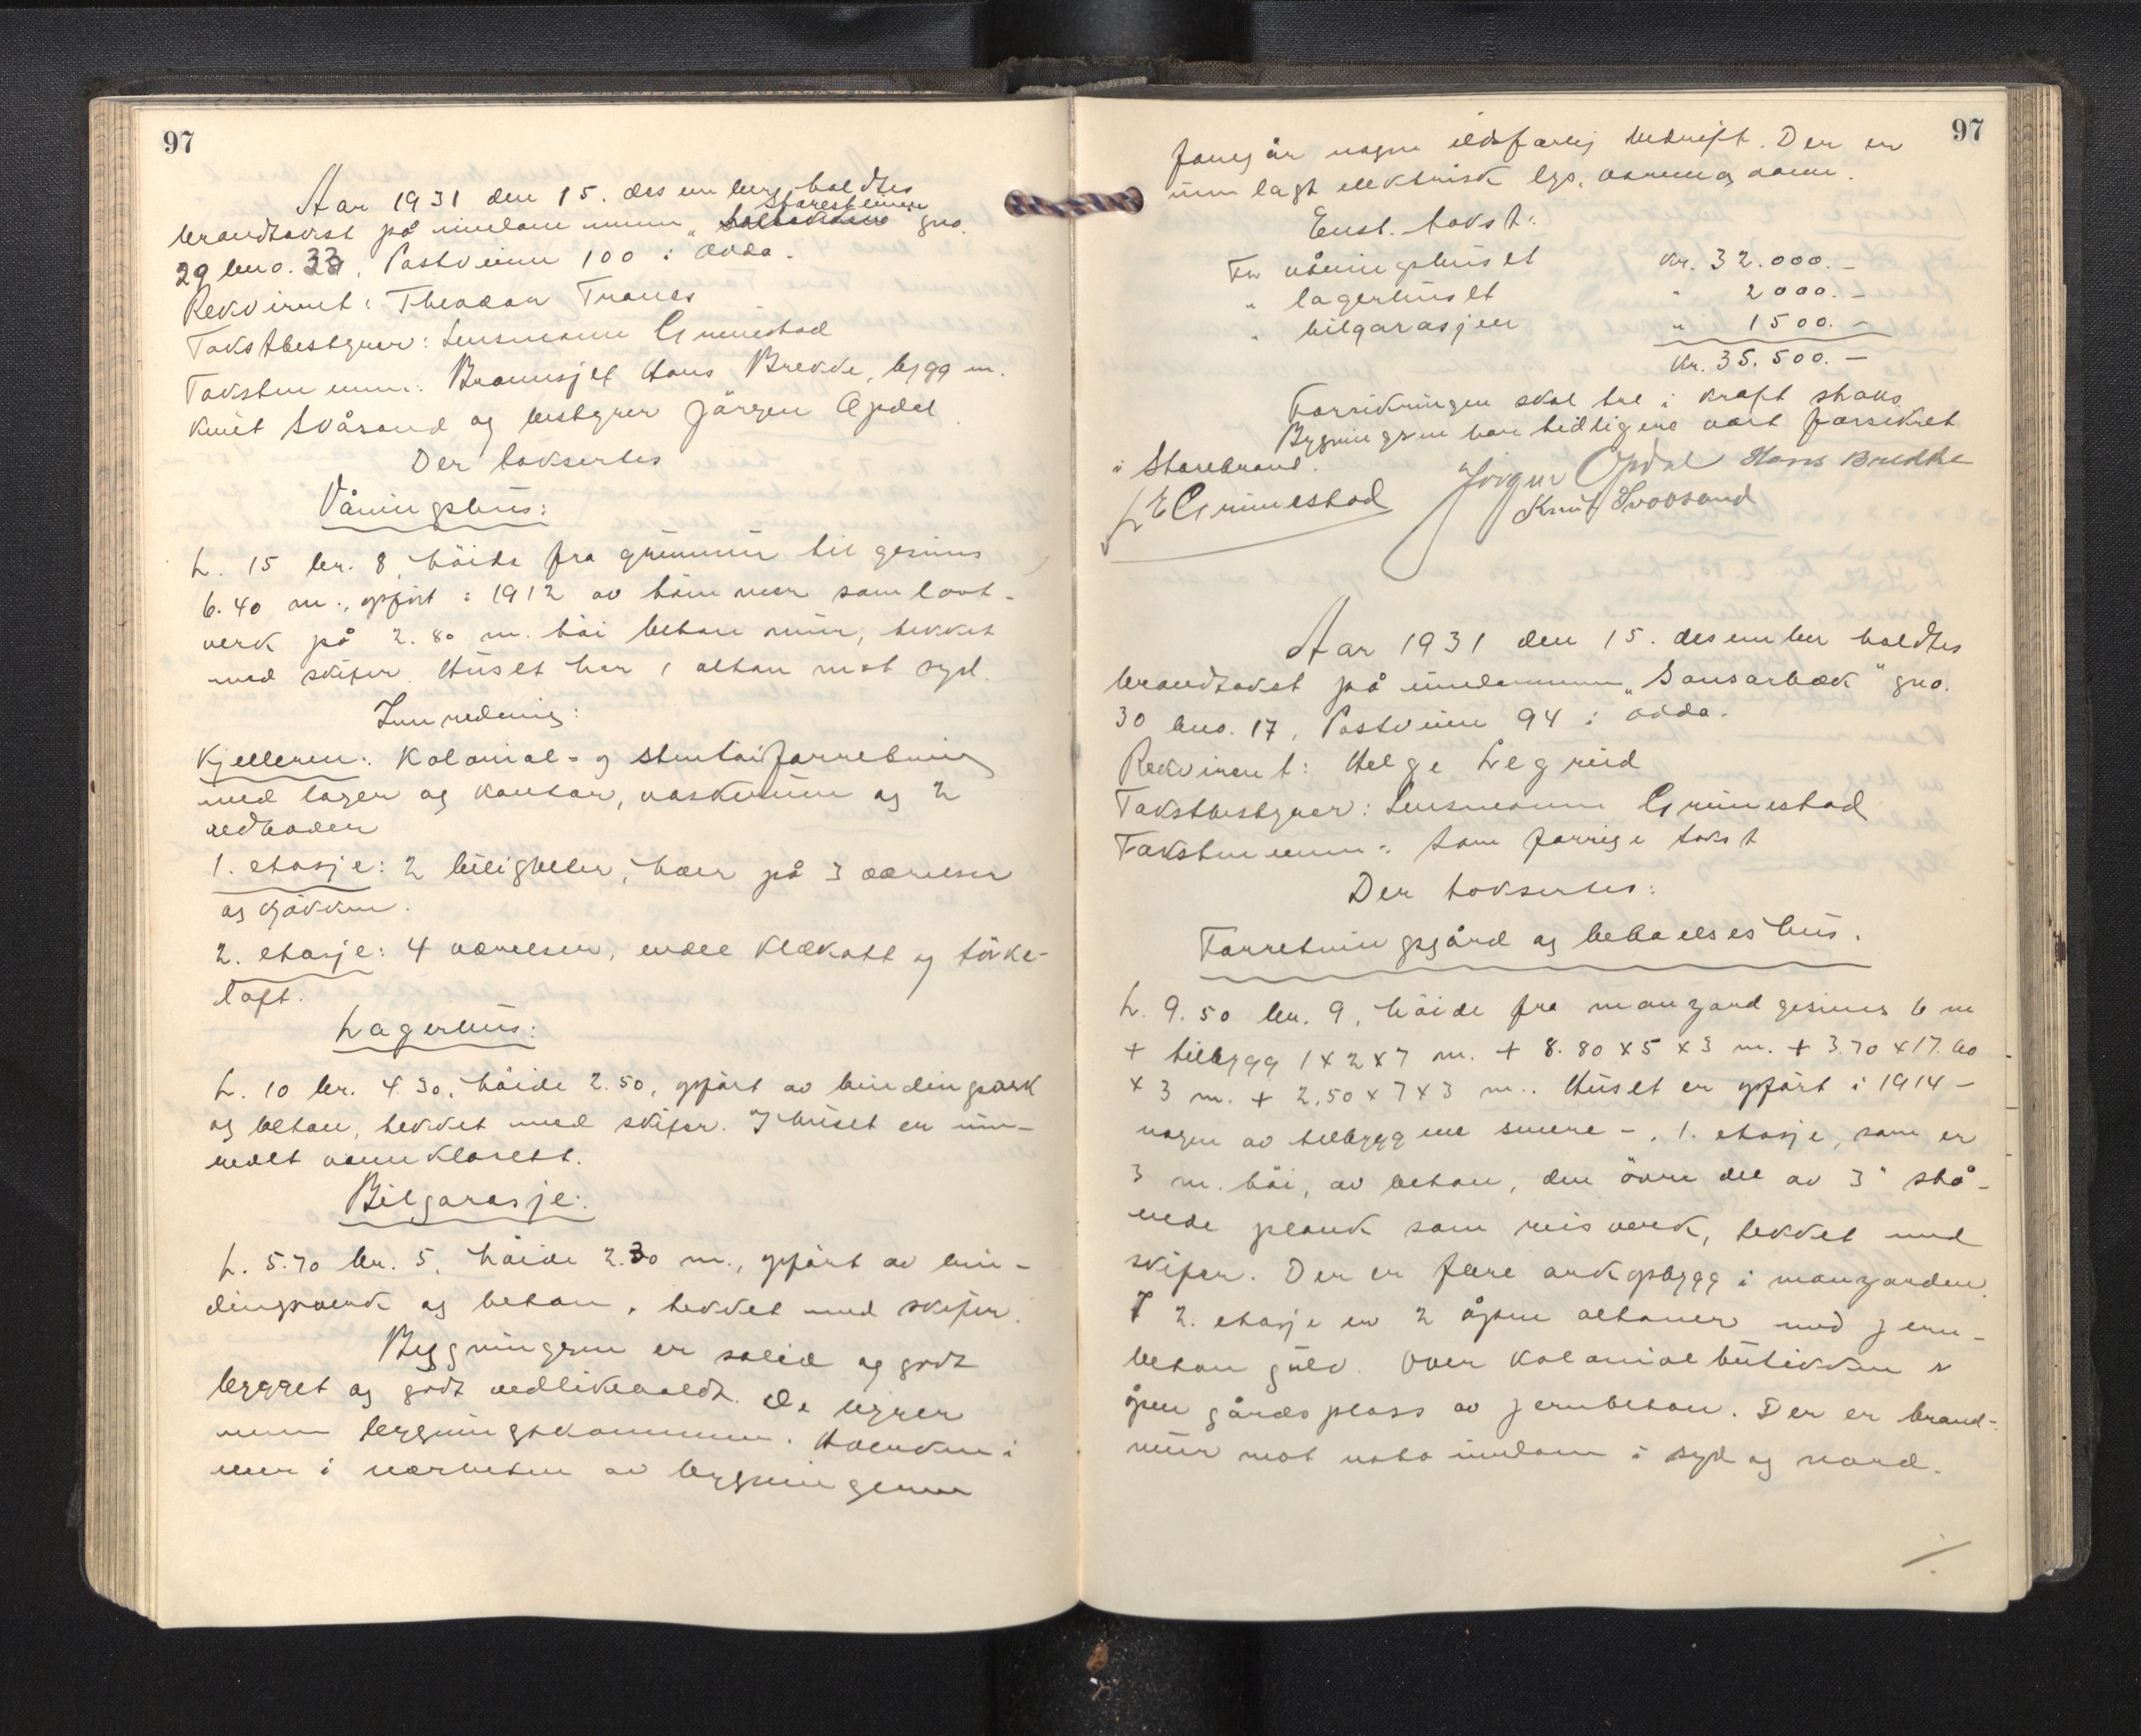 97
Aar 1931 den 15. desember holdtes
brandtakst på eiendommen „Storesteinen" gno.
29 bno. 33, Postveien 100 i Odda.
Rekvirent: Theodor Tranes
Takstbestyrer: Lensmann Grimestad
Takstmenn: Brannsjef Hans Brekke, bygg m.
Knut Svåsand og bestyrer Jörgen Opdal
Der taksertes
Våningshus:
L. 15 br. 8, höide fra grunnmur til gesims
6.40 m., opfört i 1912 av tömmer som lavt-
verk på 2.80 m. höi betonmur, tekket
med skifer. Huset har 1 altan mot syd.
Innredning:
Kjelleren: Kolonial- og stentöiforretning
med lager og kontor, vaskerum og 2
vedboder
1. etasje: 2 leiligheter, hver på 3 værelser
og kjökken.
2. etasje: 4 værelser, endel klækott og törke-
loft.
Lagerhus:
L. 10 br. 4.30, höide 2.50, opfört av bindingsverk
og beton, tekket med skifer. I huset er inn-
redet vannklosett.
Bilgarasje:
L. 5.70 br. 5, höide 2.30 m., opfört av bin-
dingsverk og beton, tekket med skifer.
Bygningene er solid og godt
bygget og godt vedlikeholdt. De ligger
innen bygningskommunen. Hverken i
eller i nærheten av bygningene
97
foregår nogen ildsfarlig bedrift. Der er
innlagt elektrisk lys, varme og vann.
Enst. takst:
For våningshuset kr. 32.000.-
" lagerhuset " 2000.-
" bilgarasjen " 1500.-
Kr. 35.500.-
Forsikringen skal tre i kraft straks
Bygningene har tidligere vært forsikret
i Storebrand.
L E Grimestad Jörgen Opdal Hans Brekke
Knut Svoosand
Aar 1931 den 15. desember holdtes
brandtakst på eiendommen „Sansarbæk" gno.
30 bno. 17, Postveien 94 i Odda.
Rekvirent: Helge Legreid
Takstbestyrer: Lensmann Grimestad
Takstmenn: Som forrige takst
Der taksertes:
Forretningsgård og beboelseshus.
L. 9.50 br. 9, höide fra manzard gesims 6 m
+ tilbygg 1 x 2 x 7 m. + 8.80 x 5 x 3 m. + 3.70 x 17.60
x 3 m. + 2.50 x 7 x 3 m.. Huset er opfört i 1914 -
nogen av tilbyggene senere -. 1. etasje, som er
3 m. höi, av beton, den övre del av 3" stå-
ende plank som reisverk, tekket med
skifer. Der er flere arkopbygg i manzarden.
I 2. etasje er 2 åpne altaner med jern-
beton gulv. Over kolonialbutikken er
åpen gårdsplass av jernbeton. Der er brand-
mur mot nabo eiendom i syd og nord.